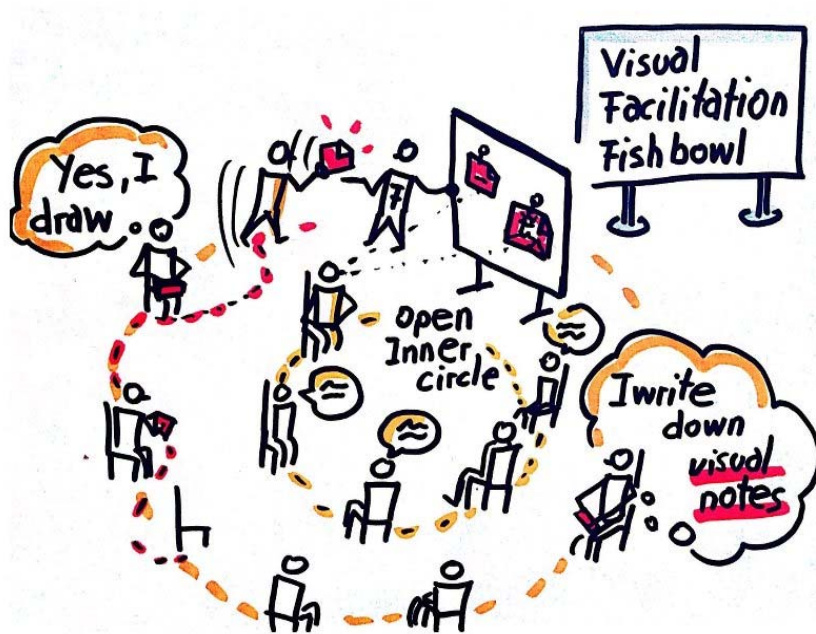 Visual
Facilitation
Fishbowl
Yes, I
draw
open
Inner
circle
I write
down
visual
notes